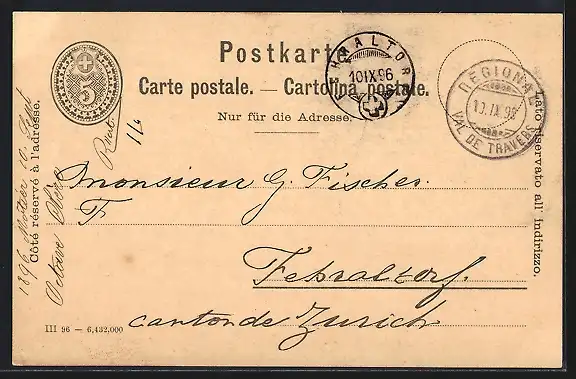 Postkarte.
Carte postale. — Cartolina postale.
Nur für die Adresse.
5
FEHRALTORF
10 IX 96
REGIONAL
10.IX.96
VAL DE TRAVERS
Côté réservé à l'adresse.
Lato riservato all' indirizzo.
1896 Motier 10 Sept
Octave
Monsieur G. Fischer
F
Fehraltorf.
canton de Zurich
III 96 — 6,432,000